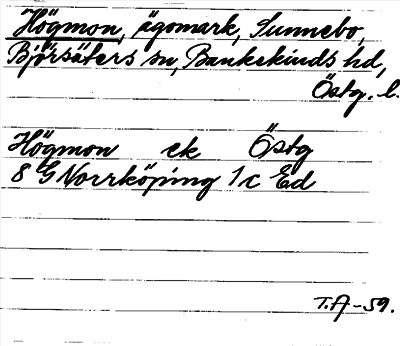 Högmon, ägomark, Sunnebo,
Björsäters sn, Bankekinds hd,
Östg. l.
Högmon ek Östg
8 G Norrköping 1c Ed
T.A-59.